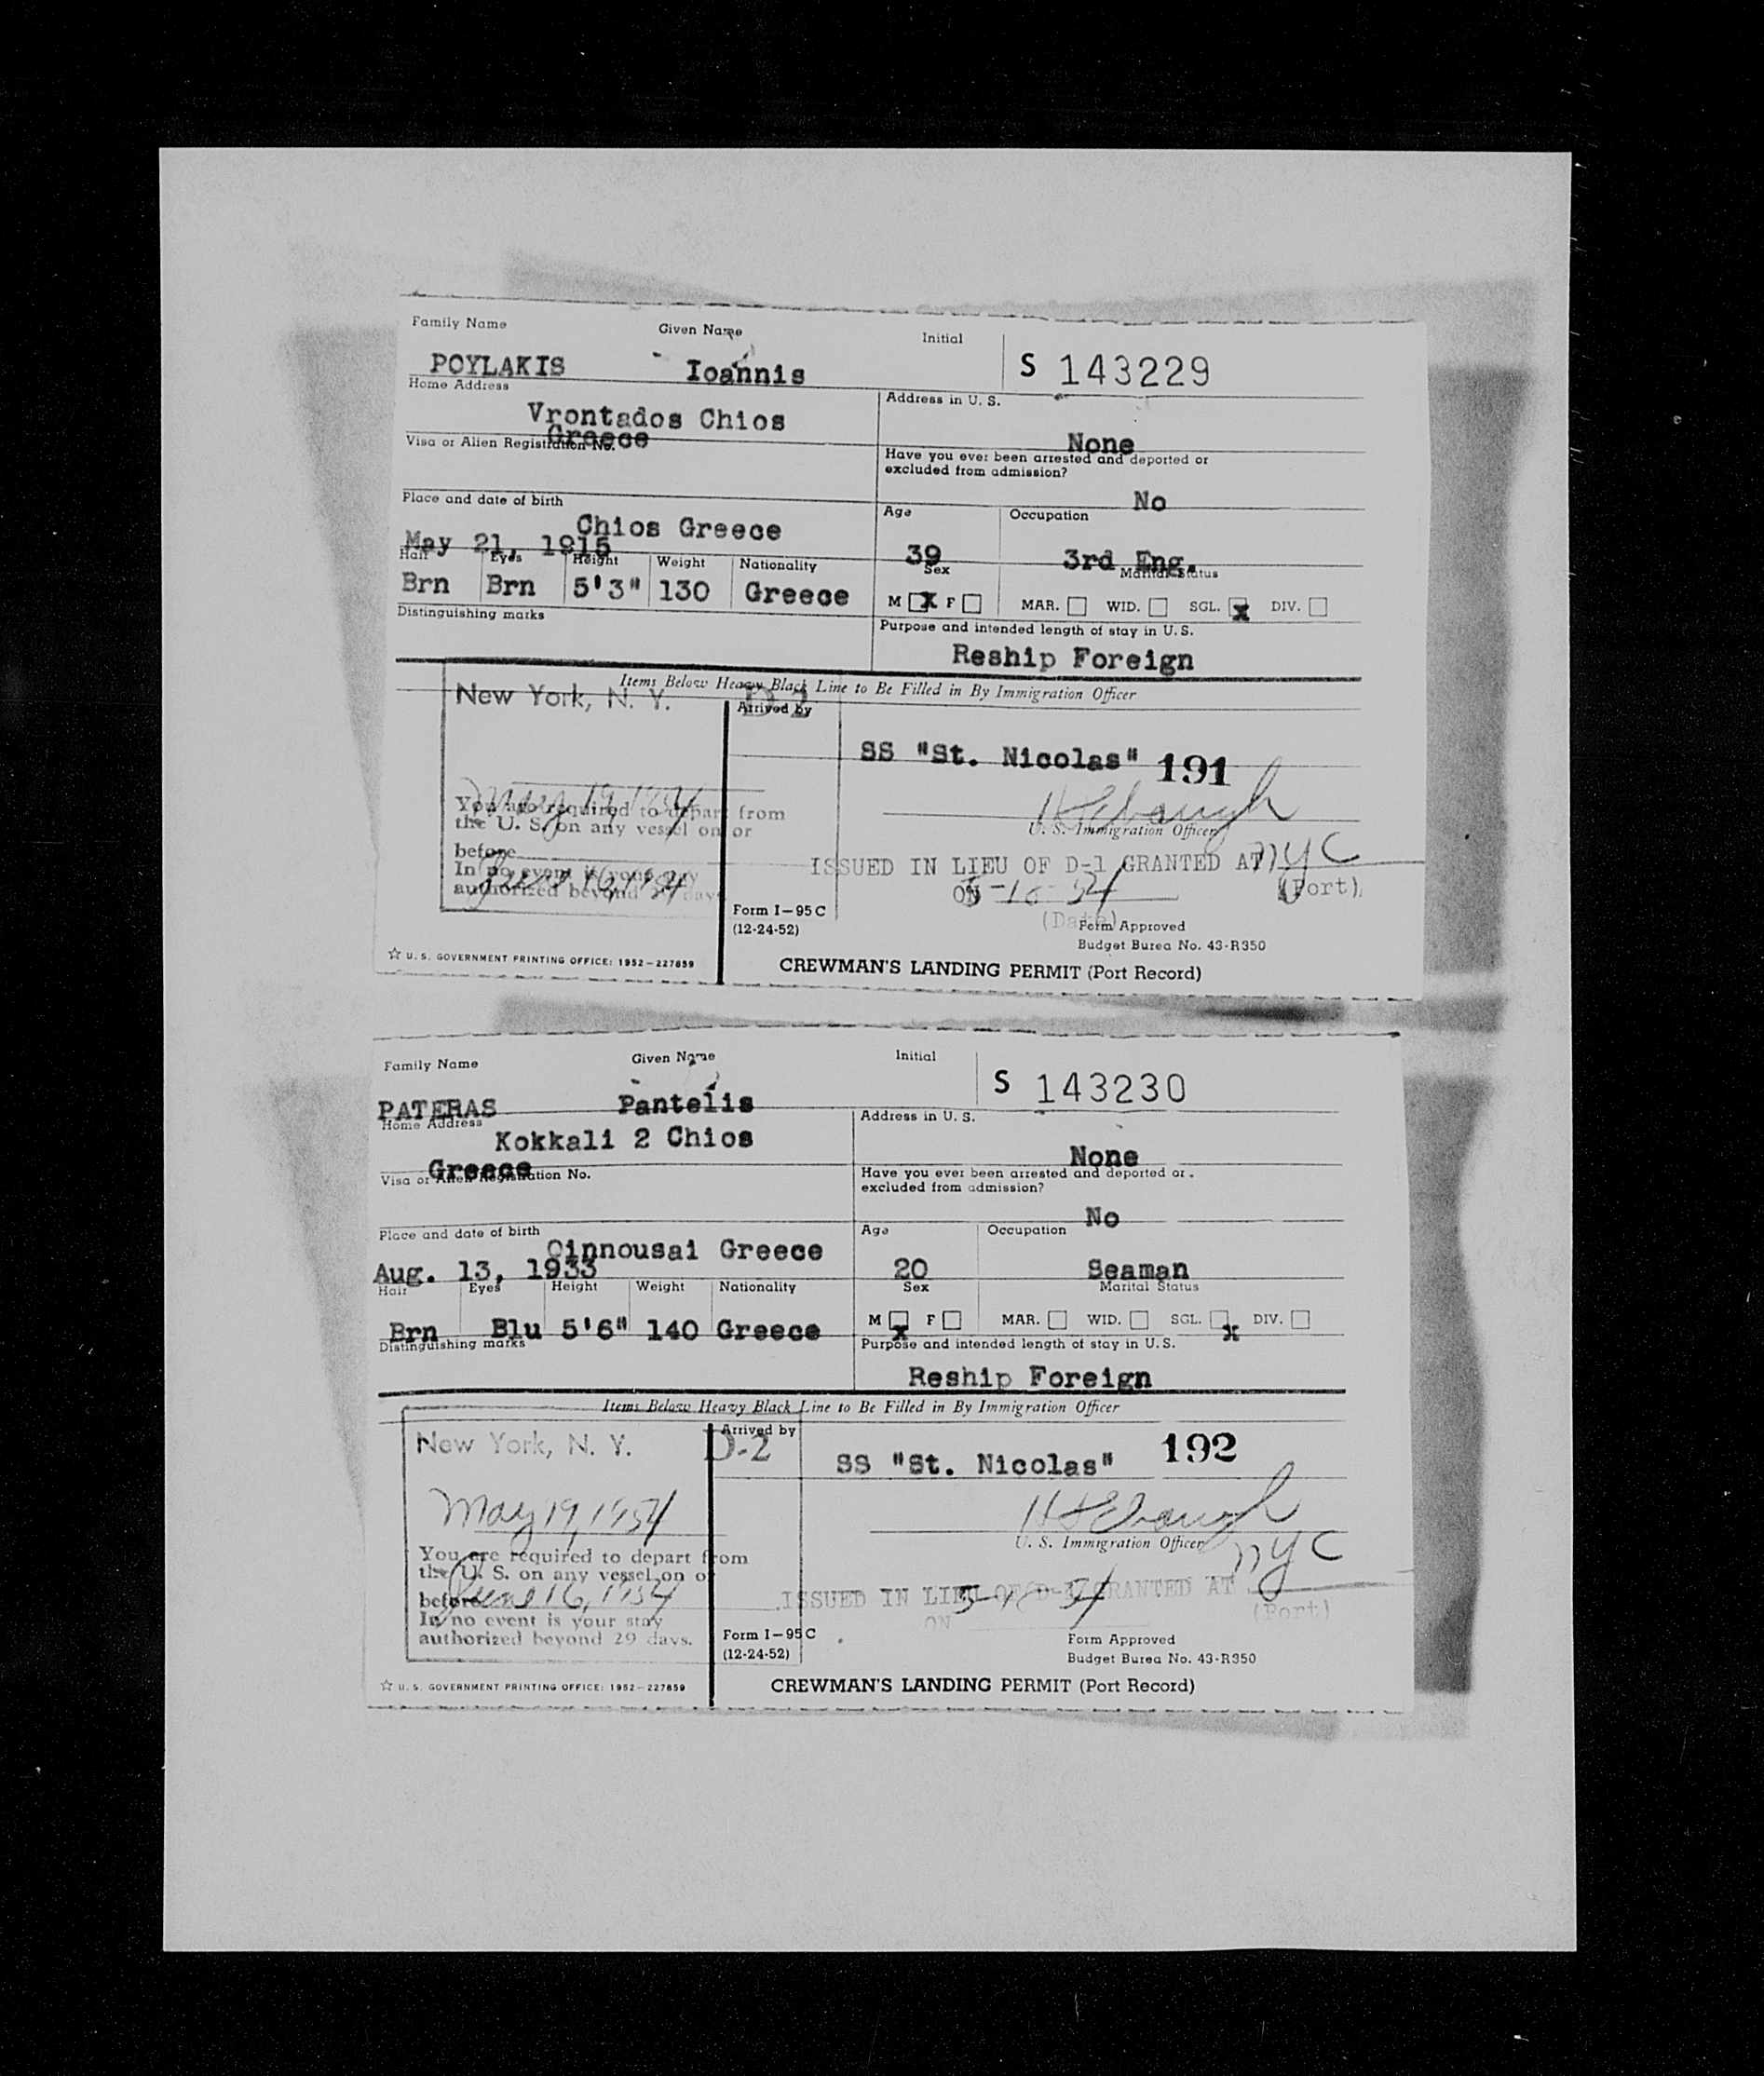 Family Name Given Name Initial
S 143229
POYLAKIS Ioannis
Home Address
Address in U. S.
Vrontados Chios
Greece
None
Visa or Alien Registration No.
Have you ever been arrested and deported or
excluded from admission?
No
Place and date of birth
Age Occupation
Chios Greece
May 21, 1915
39
3rd Eng.
Hair Eyes Height Weight Nationality
Sex Marital Status
Brn Brn 5'3" 130 Greece
M X F MAR. WID. SGL. X DIV.
Distinguishing marks
Purpose and intended length of stay in U. S.
Reship Foreign
Items Below Heavy Black Line to Be Filled in By Immigration Officer
New York, N. Y.
D-2
Arrived by
SS "St. Nicolas" 191
May 19, 1954
You are required to depart from
the U. S. on any vessel on or
before
June 16, 1954
In no event is your stay
authorized beyond 29 days
U. S. Immigration Officer
ISSUED IN LIEU OF D-1 GRANTED AT NYC
ON
(Port)
(Date)
Form I-95C
(12-24-52)
Form Approved
Budget Burea No. 43-R350
☆ U. S. GOVERNMENT PRINTING OFFICE: 1952-227859
CREWMAN'S LANDING PERMIT (Port Record)
Family Name Given Name Initial
S 143230
PATERAS Pantelis
Home Address
Address in U. S.
Kokkali 2 Chios
Greece
None
Visa or Alien Registration No.
Have you ever been arrested and deported or
excluded from admission?
No
Place and date of birth
Age Occupation
Oinnousai Greece
Aug. 13, 1933
20
Seaman
Hair Eyes Height Weight Nationality
Sex Marital Status
Brn Blu 5'6" 140 Greece
M X F MAR. WID. SGL. X DIV.
Distinguishing marks
Purpose and intended length of stay in U. S.
Reship Foreign
Items Below Heavy Black Line to Be Filled in By Immigration Officer
New York, N. Y.
D-2
Arrived by
SS "St. Nicolas" 192
May 19, 1954
You are required to depart from
the U. S. on any vessel on or
before June 16, 1954
In no event is your stay
authorized beyond 29 days.
U. S. Immigration Officer
NYC
ISSUED IN LIEU OF D-1 GRANTED AT
ON
(Port)
Form I-95C
(12-24-52)
Form Approved
Budget Burea No. 43-R350
☆ U. S. GOVERNMENT PRINTING OFFICE: 1952-227859
CREWMAN'S LANDING PERMIT (Port Record)